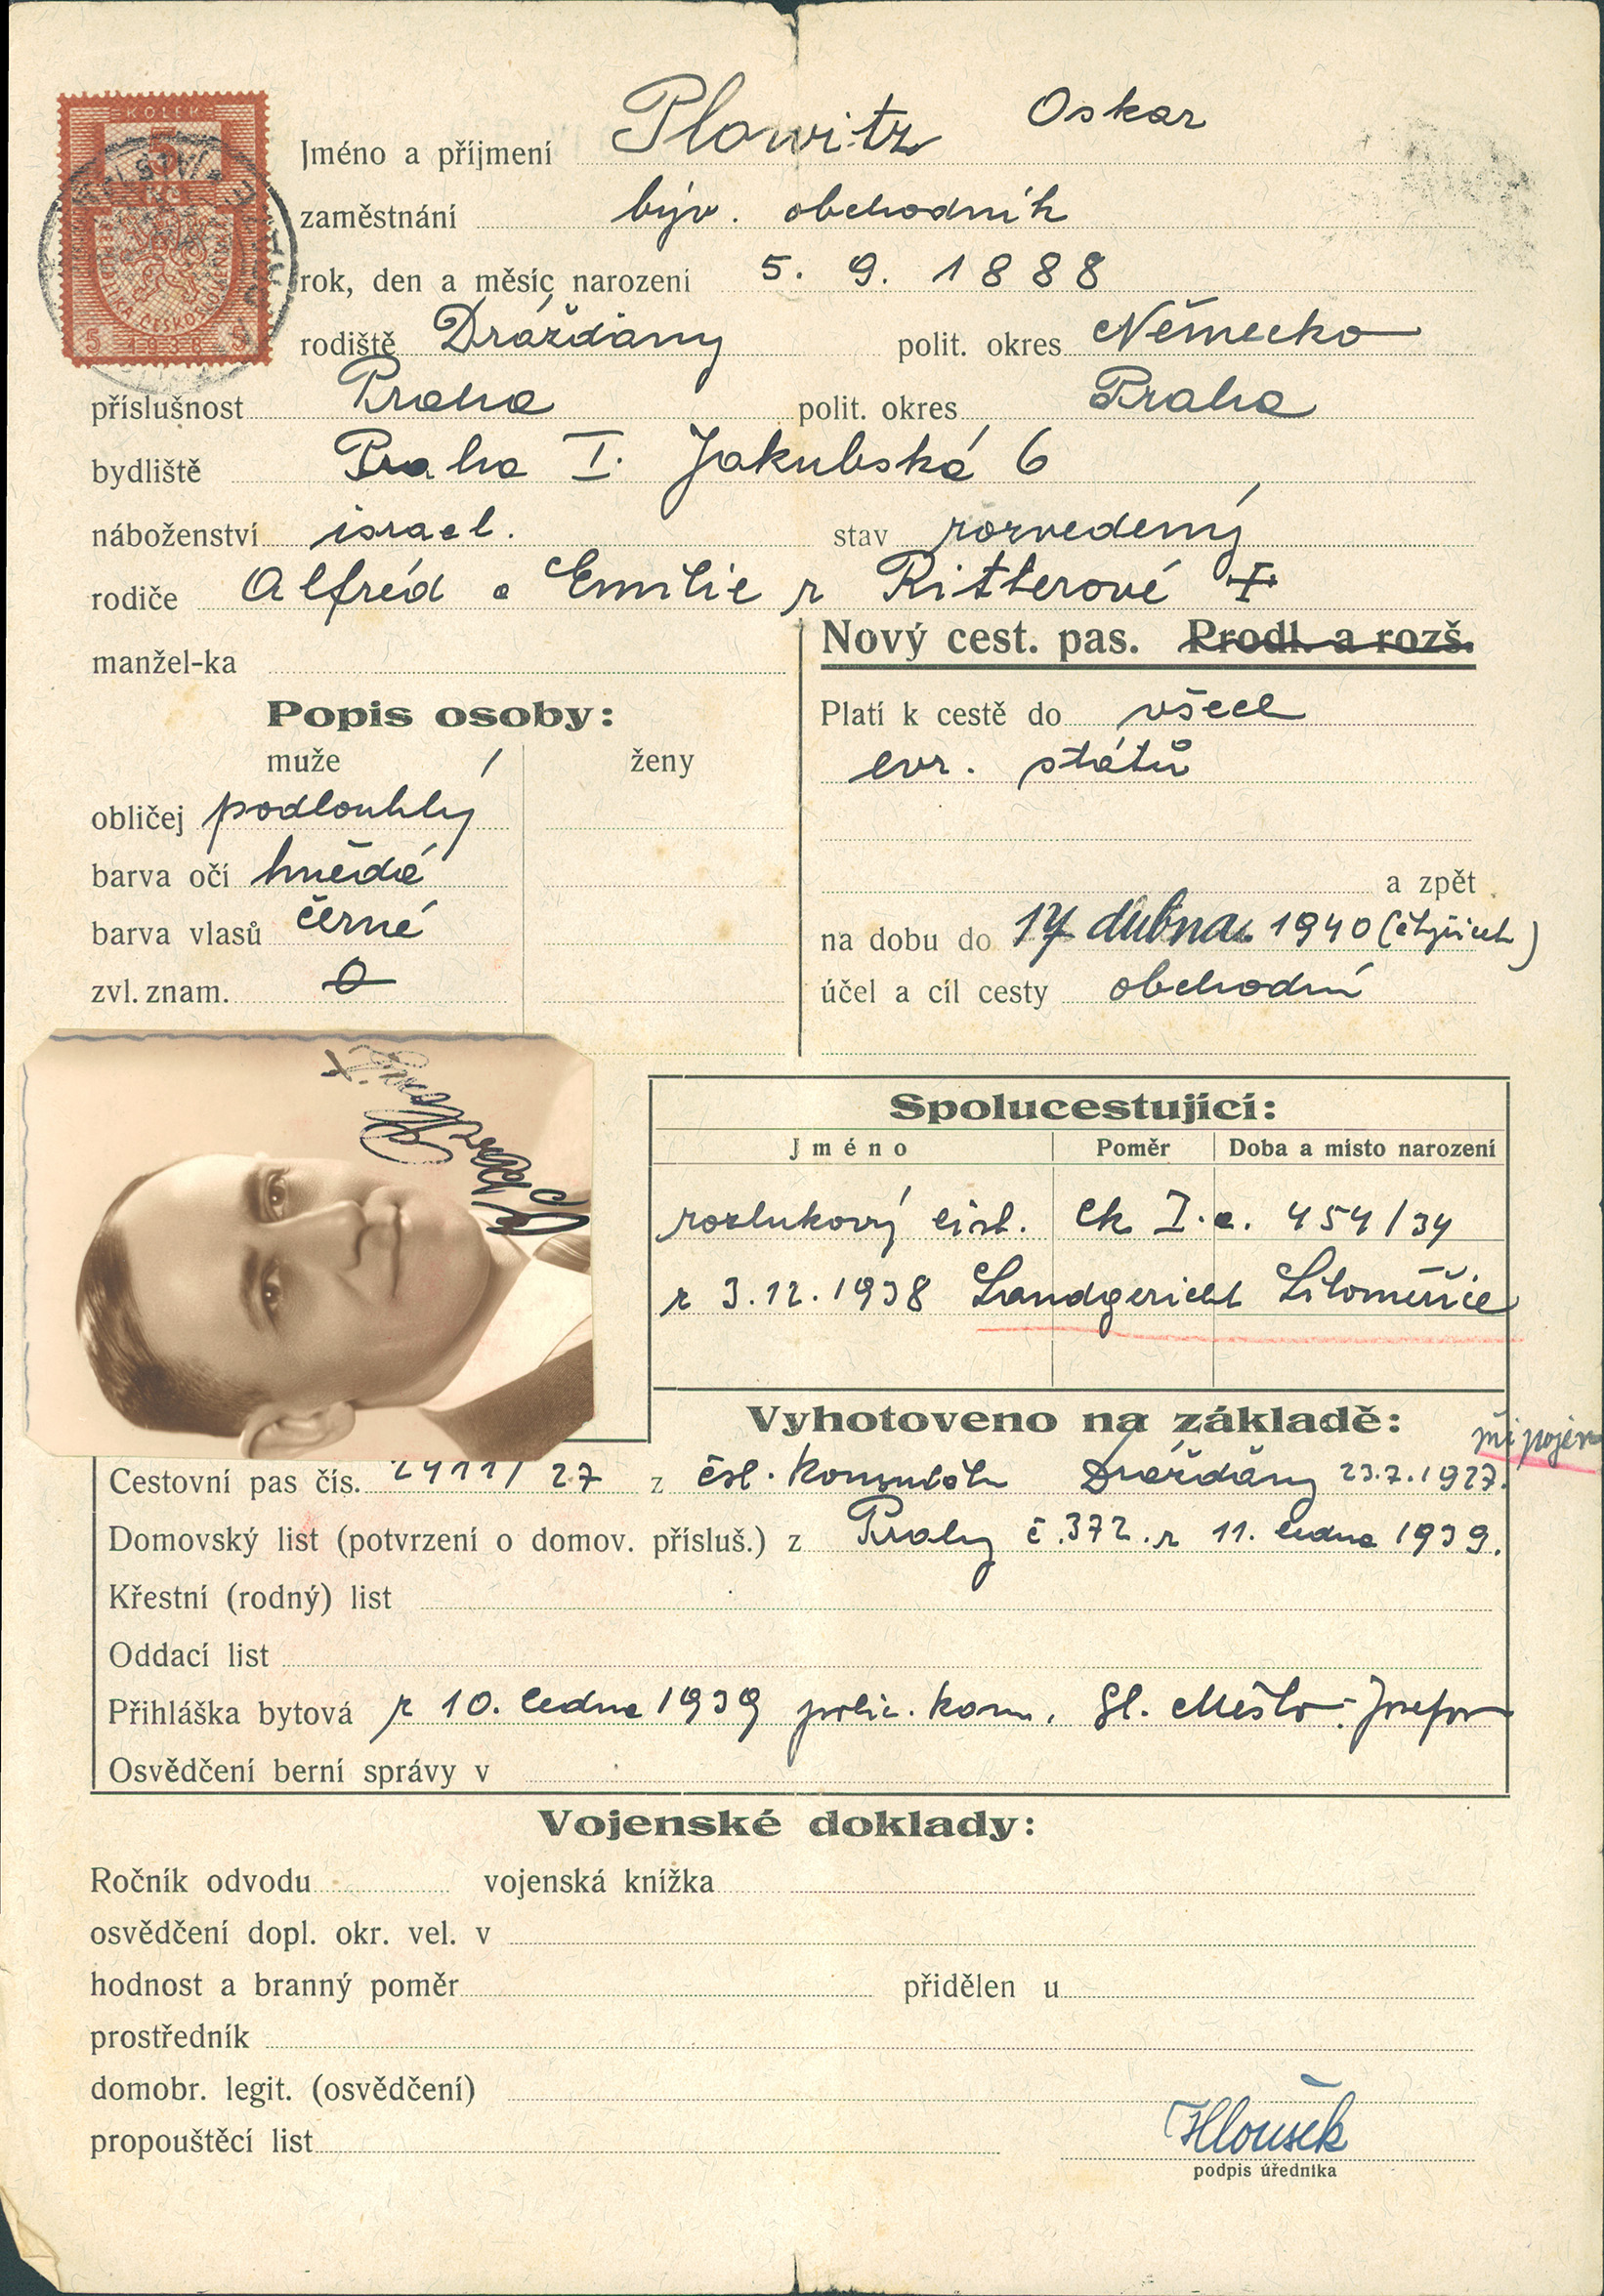 KOLEK
5
Kč
REPUBLIKA ČESKOSLOVENSKÁ
5 1938 5
Jméno a příjmení Plowitz Oskar
zaměstnání býv. obchodník
rok, den a měsíc narození 5. 9. 1888
rodiště Drážďany polit. okres Německo
příslušnost Praha polit. okres Praha
bydliště Praha I. Jakubská 6
náboženství israel. stav rozvedený
rodiče Alfréd a Emilie r Ritterové
manžel-ka
Nový cest. pas. Prodl. a rozš.
Popis osoby:
muže / ženy
obličej podlouhlý
barva očí hnědé
barva vlasů černé
zvl. znam. 0
Platí k cestě do všech
evr. států
a zpět
na dobu do 17 dubna 1940 (čtyřicet)
účel a cíl cesty obchodní
Spolucestující:
Jméno Poměr Doba a místo narození
rozlukový čísl. Ck I.a. 454/34
z 3.12.1938 Landgericht Litoměřice
Vyhotoveno na základě:
Cestovní pas čís. 2411/27 z čsl. konsulátu Drážďany 23.7.1927.
Domovský list (potvrzení o domov. přísluš.) z Prahy č. 372. z 11. ledna 1939.
Křestní (rodný) list
Oddací list
Přihláška bytová z 10. ledna 1939 polic. kom. St. Město-Josefov
Osvědčení berní správy v
Vojenské doklady:
Ročník odvodu vojenská knížka
osvědčení dopl. okr. vel. v
hodnost a branný poměr přidělen u
prostředník
domobr. legit. (osvědčení)
propouštěcí list
Hloušek
podpis úředníka